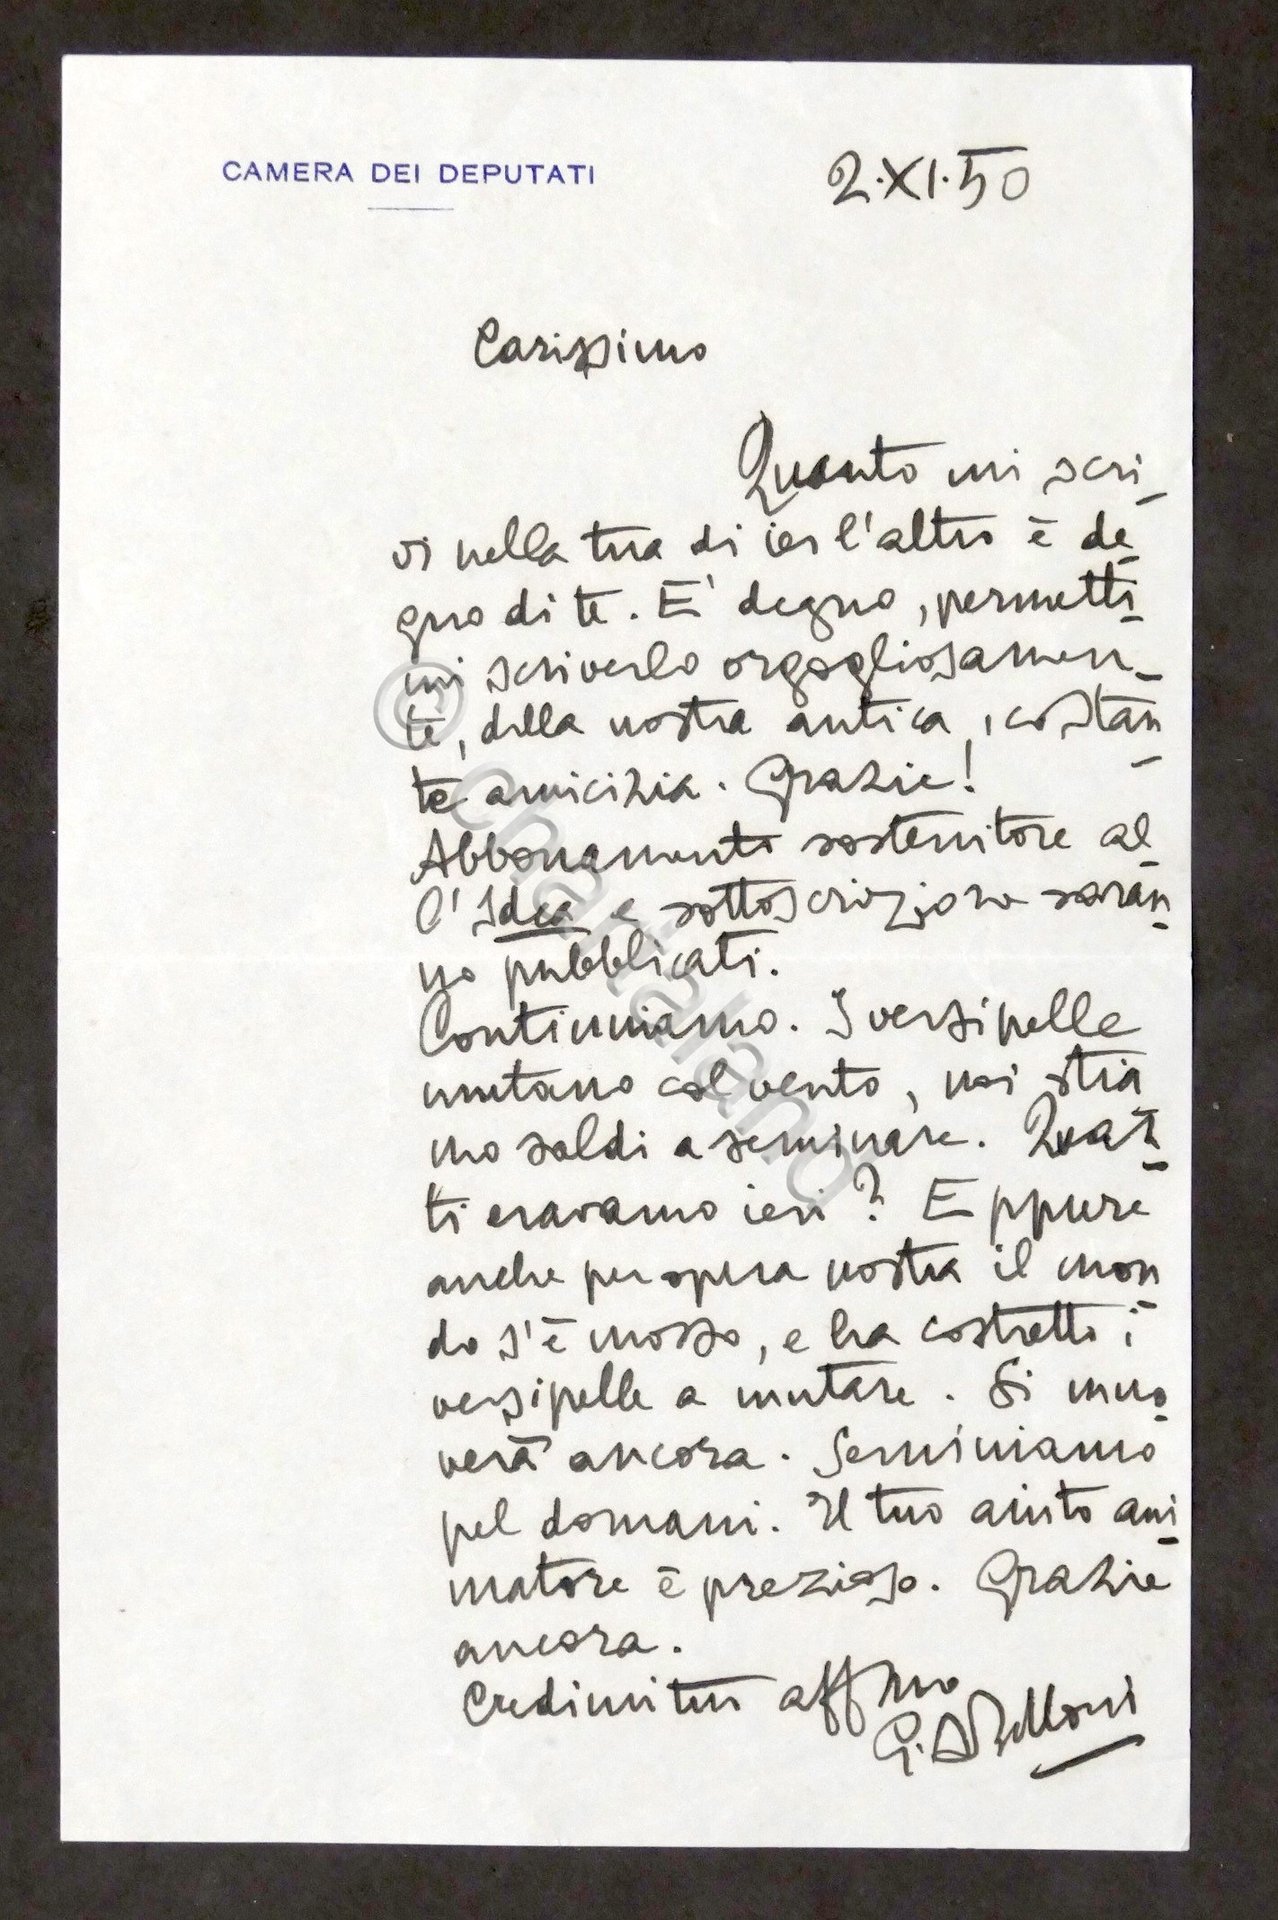 CAMERA DEI DEPUTATI
2.XI.50
Carissimo
Quanto mi scri-
vi nella tua di ier l'altro è de-
gno di te. E' degno, permetti-
mi scriverlo orgogliosamen-
te, della nostra antica, costan-
te amicizia. Grazie!
Abbonamento sostenitore al-
l'Idea e sottoscrizione saran-
no pubblicati.
Continuiamo. I versipelle
mutano col vento, noi stia
mo saldi a seminare. Quat-
ti eravamo ieri? Eppure
anche per opera nostra il mon-
do s'è mosso, e ha costretto i
versipelle a mutare. Si muo-
verà ancora. Seminiamo
pel domani. Il tuo aiuto ani-
matore è prezioso. Grazie
ancora.
Credimi tuo affmo
G. A Belloni
© chartaland